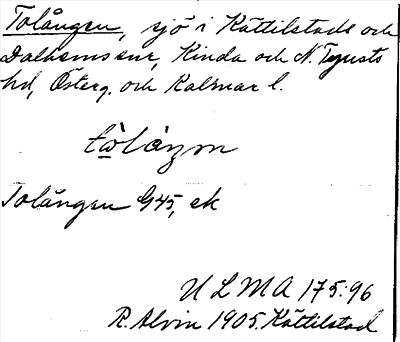 Tolången, sjö i Kättilstads och
Dalhems snr, Kinda och N. Tjusts
hd, Österg. och Kalmar l.
tὼlàŋən
Tolången G45, ek
ULMA 175:96
R. Alvin 1905. Kättilstad